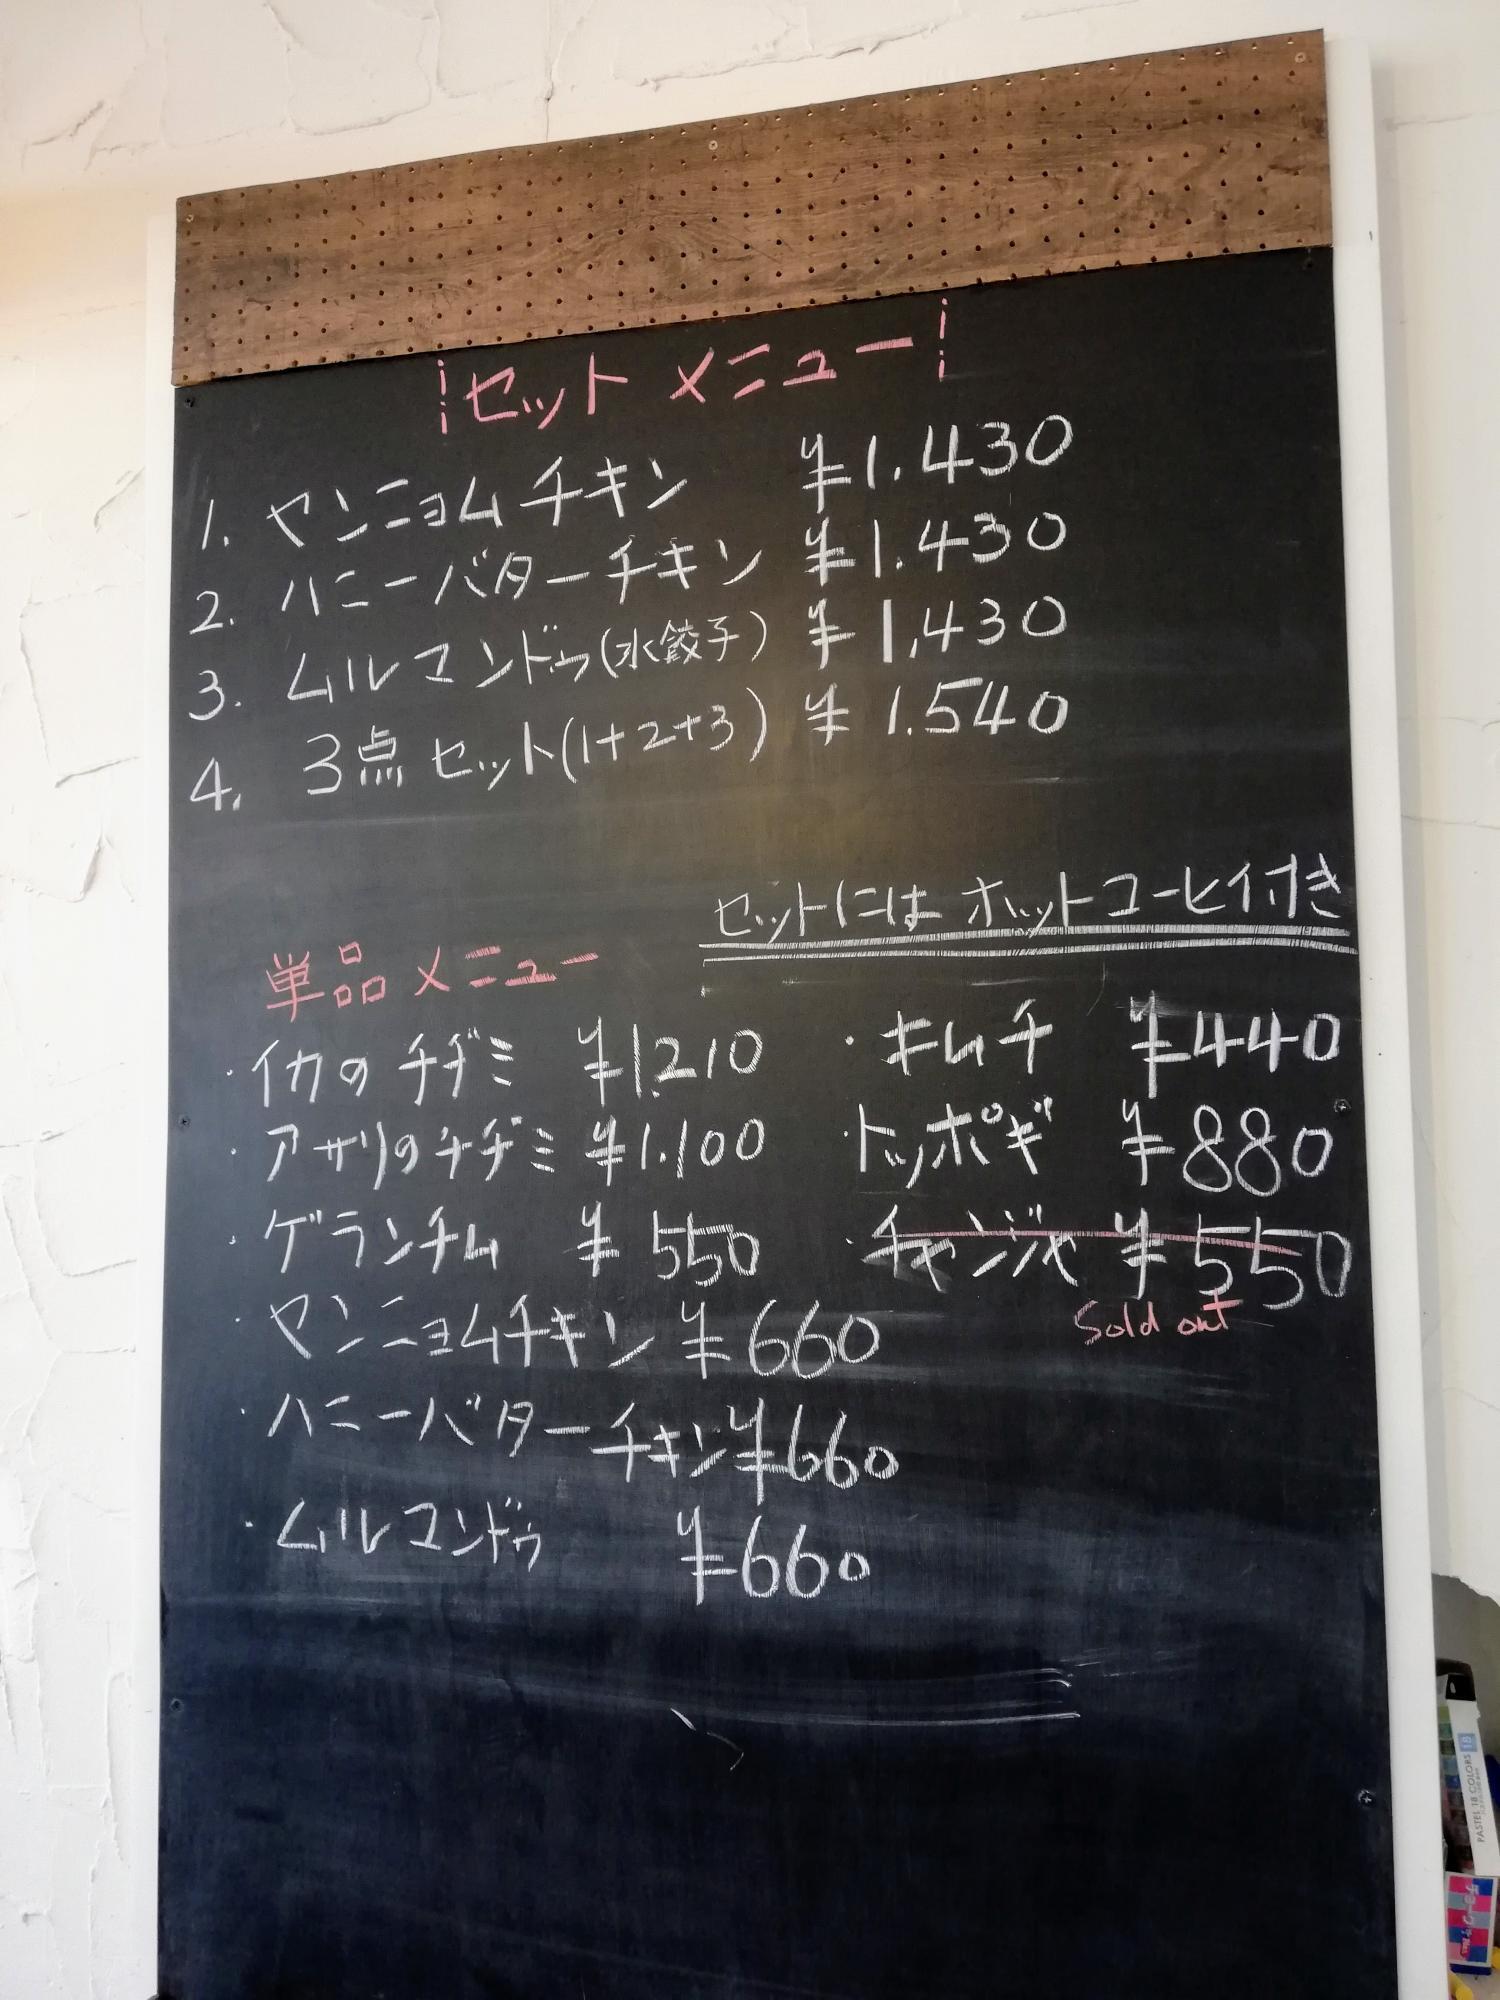 ¦セット メニュー¦
1. ヤンニョムチキン ¥1.430
2. ハニーバターチキン ¥1.430
3. ムルマンドゥ(水餃子) ¥1,430
4. 3点セット(1+2+3) ¥1.540
セットにはホットコーヒイ付き
単品メニュー
・イカのチヂミ ¥1.210
・アサリのチヂミ ¥1.100
・ゲランチム ¥550
・ヤンニョムチキン ¥660
・ハニーバターチキン ¥660
・ムルマンドゥ ¥660
・キムチ ¥440
・トッポギ ¥880
・チャンジャ ¥550
Sold out
PASTEL 18 COLORS 18